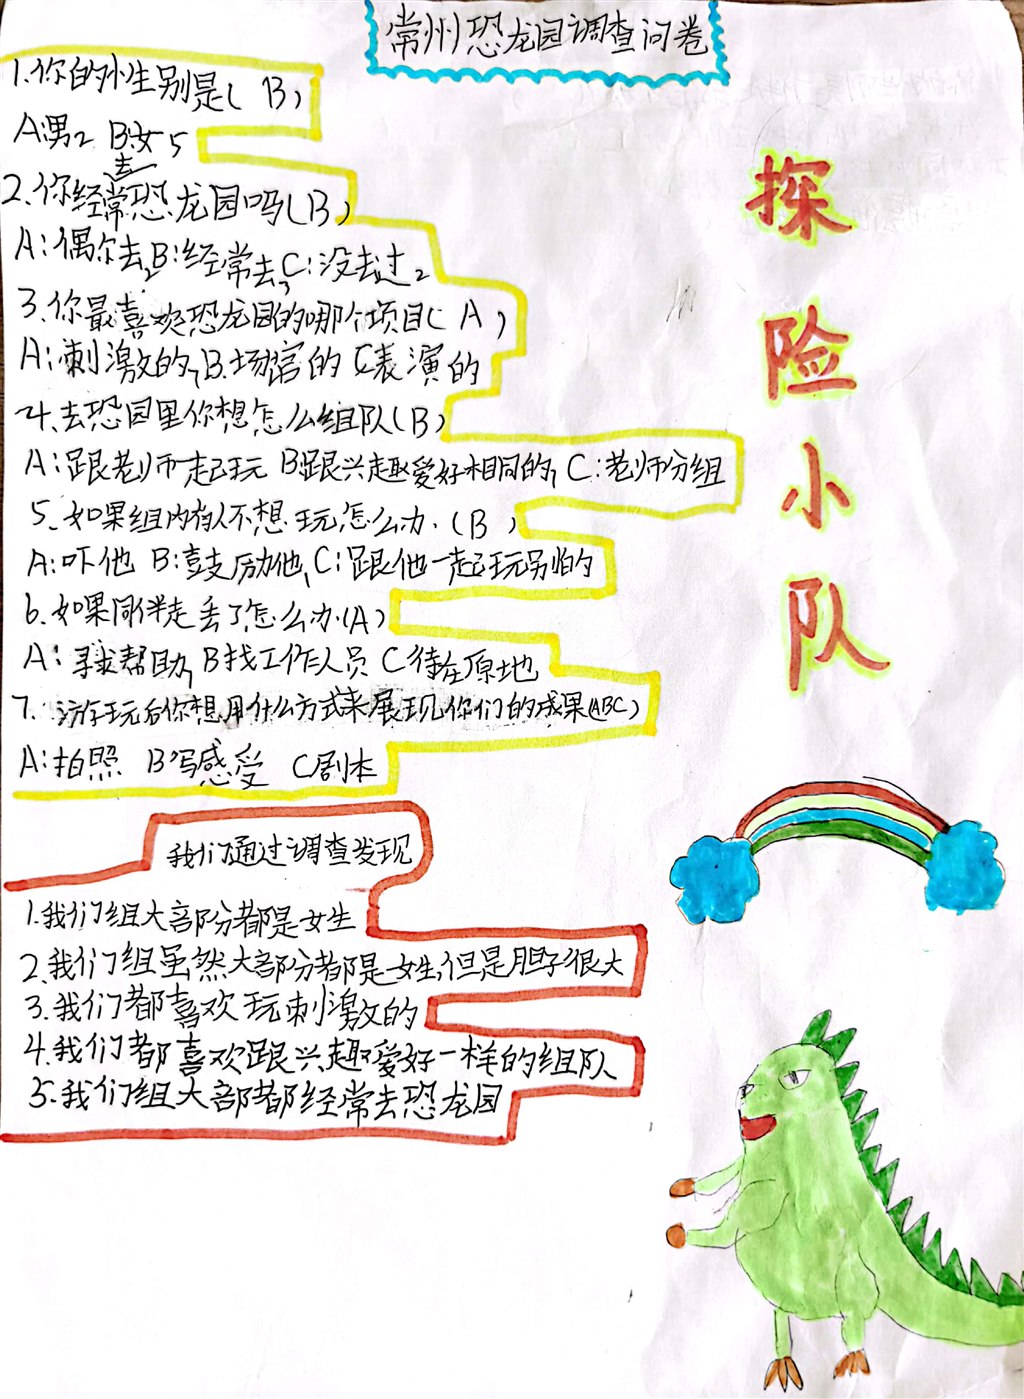 常州恐龙园调查问卷
探险小队
1.你的性别是( B)
A:男2 B:女5
2.你经常去恐龙园吗(B)
A:偶尔去2 B:经常去3 C:没去过2
3.你最喜欢恐龙园的哪个项目( A )
A:刺激的7 B.场馆的 C表演的
4.去恐园里你想怎么组队(B)
A:跟老师一起玩 B跟兴趣爱好相同的7 C:老师分组
5.如果组内有人不想玩怎么办.(B )
A:吓他 B:鼓励他 C:跟他一起玩别的
6.如果同伴走丢了怎么办.(A)
A:寻求帮助7 B找工作人员 C待在原地
7.游玩后你想用什么方式来展现你们的成果(ABC)
A:拍照 B写感受 C剧本
我们通过调查发现
1.我们组大部份都是女生
2.我们组虽然大部分都是女生,但是胆子很大
3.我们都喜欢玩刺激的
4.我们都喜欢跟兴趣爱好一样的组队
5.我们组大部都经常去恐龙园